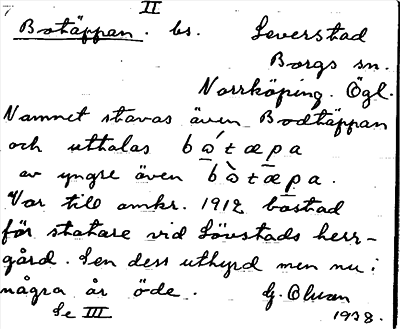 II
Botäppan. bs. Leverstad
Borgs sn.
Norrköping. Ögl.
Namnet stavas även Bodtäppan
och uttalas
av yngre även
Var till omkr. 1912 bostad
för statare vid Lövstads herr-
gård. Sen dess uthyrd men nu i
några år öde. G. Olson
Se III 1938.